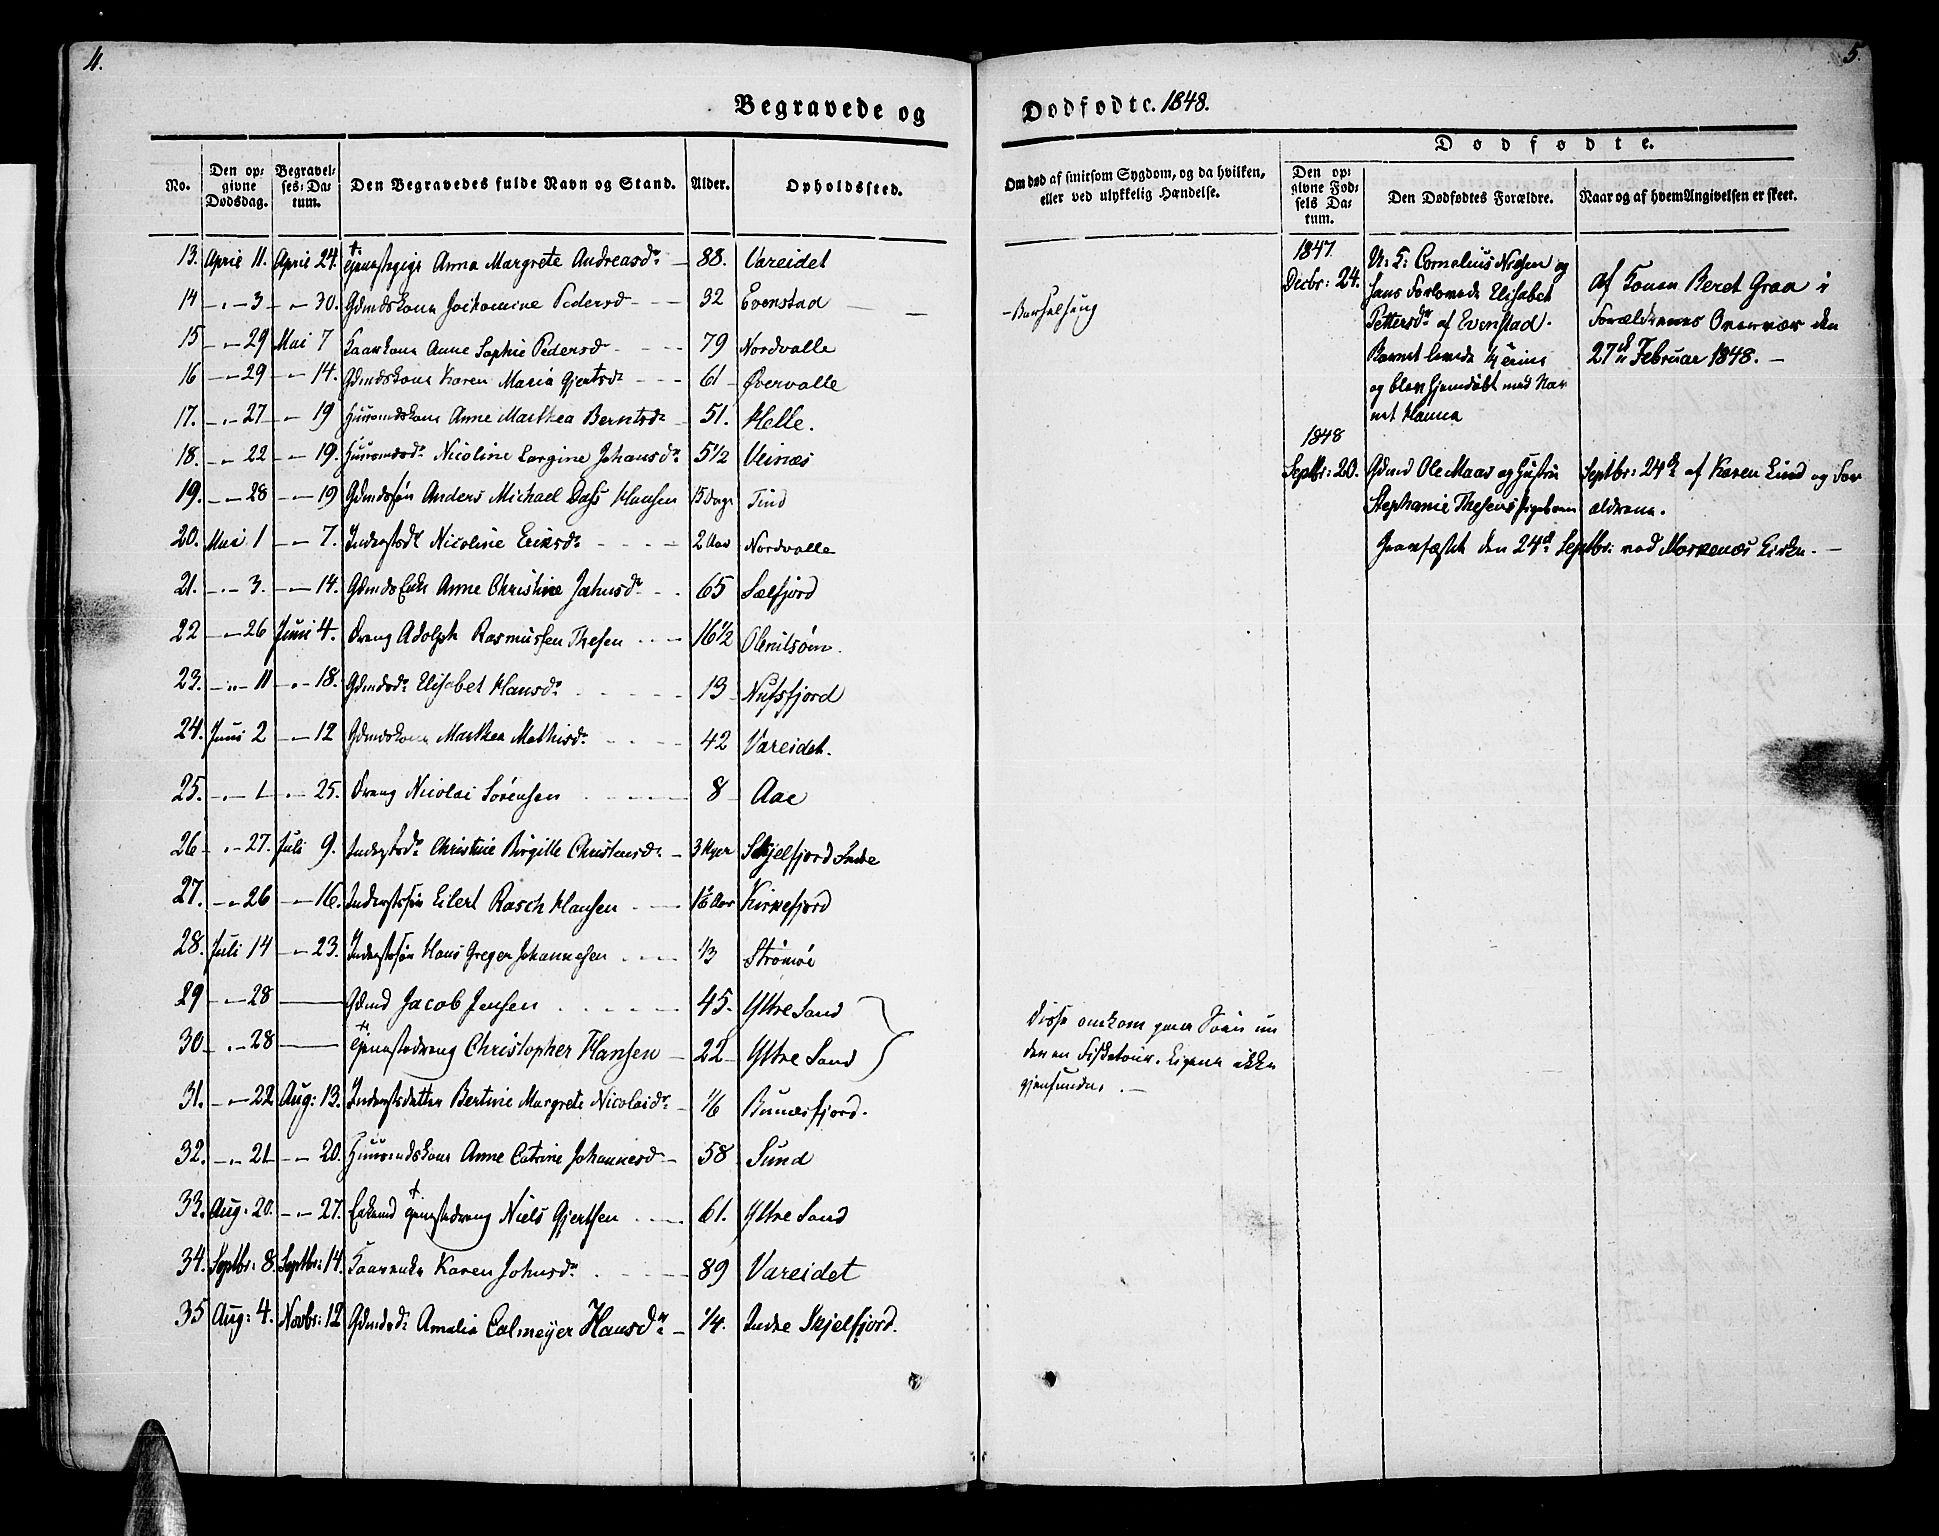 4.
5.
Begravede og
Dødfødte. 1848.
Dødfødte.
No.
Den opgivne Dødsdag.
Begravelses-Datum.
Den Begravedes fulde Navn og Stand.
Alder.
Opholdssted.
Om død af smitsom Sygdom, og da hvilken, eller ved ulykkelig Hændelse.
Den opgivne Fødsels Datum.
Den Dødfødtes Forældre.
Naar og af hvem Angivelsen er skeet.
13. April 11. April 24. Anna Margrete Andreasdr 88. Vareidet
14 - " - 3 - " - 30. Gdmdskone Jockomine Pedersd 32 Evenstad - Barselseng
15 - " - 29 Mai 7 Kaarkone Anne Sophie Pedersd 79 Nordvalle
16 - " - 29 - " - 14. Gdmdskone Karen Maria Gjertsdr 61 Øvervalle
17. - " - 27 - " - 19 Huusmdskone Anne Marthea Berntsdr 51. Helle.
18. - " - 22 - " - 19. Huusmdsdr Nicoline Lorgine Johansdr 5 1/2 Veinæs
19. - " - 28 - " - 19 Gdmdssøn Anders Michael Dass Hansen 15 Dage Tind
20. Mai 1 - " - 7. Inderstdr Nicoline Eriksdr 2 Aar Nordvalle
21. - " - 3. - " - 14. Gdmds Enke Anne Christine Johnsdr 65 Sælfjord
22 - " - 26 Juni 4. Dreng Adolph Rasmussen Thesen 16 1/2 Olenilsøen
23. - " - 11 - " - 18. Gdmdsdr Elisabet Hansdr 13 Nufsfjord
24. Juni 2 - " - 12 Gdmdskone Marthea Mathisdr 42 Vareidet.
25. - " - 1 - " - 25. Dreng Nicolai Sørensen 8 Aae
26 - " - 27. Juli 9. Inderstsdr Christine Birgitte Christensdr 3 Uger Skjelfjord Indre
27. - " - 26 - " - 16. Inderstsøn Eilert Rasch Hansen Aar Kirkefjord
28. Juli 14 - " - 23. Inderstsøn Hans Greger Johannesen 1/3 Strømøe
29 - " - 28 — Gdmd Jacob Jensen 45. Yttre Sand
30 - " - 28 — Tjenestedreng Christopher Hansen 22 Yttre Sand
31. - " - 22 Aug: 13. Inderstsdatter Bertine Margrete Nicolaidr 1/6 Bunæsfjord.
32. - " - 21 - " - 20. Huusmdskone Anne Catrine Johannesd 58 Sund
33. Aug: 20. - " - 27. Enkemd Tjenestedreng Niels Gjertsen 61. Yttre Sand
34. Septbr: 8. Septbr: 14. Kaarenke Karen Johnsdr 89 Vareidet
35 Aug: 4. Novbr: 12 Gdmdsdr Amalia Calmeyer Hansdr 1/4. Indre Skjelfjord.
Disse omkom paa Søen un
der en Fisketour. Ligene ikke
gjenfundne. —
1847
Decbr: 24.
U: K: Cornelius Nielsen og
hans Forlovede Elisabet
Pettersdr af Evenstad.
Barnet levede
og blev hjemdøbt med Nav
net Hanna
af Konen Beret Graa i
Forældrenes Overvær den
27d Februar 1848. —
1848
Septbr: 20.
Gdmd Ole Maas og Hustru
Stephanie Thesens Pigebarn
Septbr: 24d af Karen Lind og For
ældrene.
Gravfæstet den 24d Septbr: ved Moskenæs Kirke. —